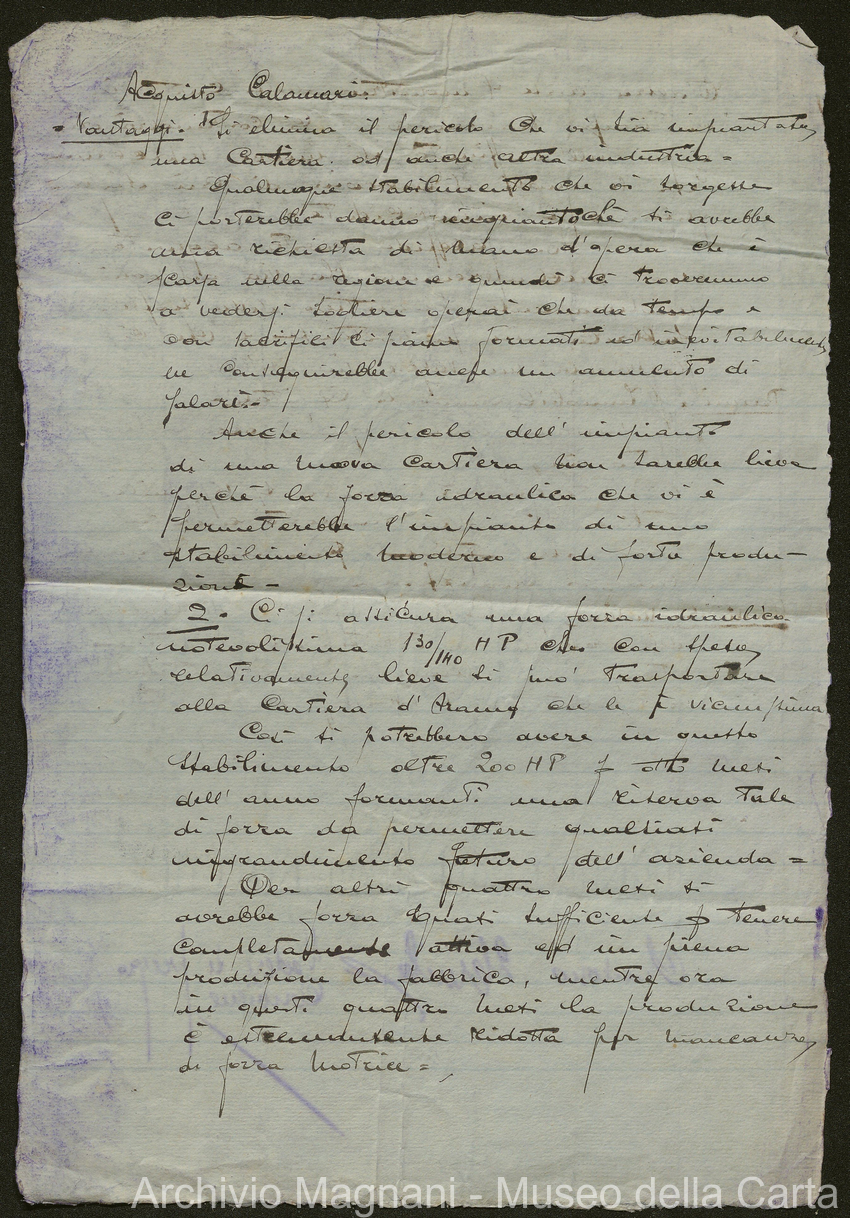 Acquisto Calamari.
= Vantaggi. 1° Si elimina il pericolo che vi sia impiantata
una Cartiera od anche altra industria =
Qualunque stabilimento che vi sorgesse
ci porterebbe danno inquantochè si avrebbe
una richiesta di mano d'opera che è
scarsa nella regione e quindi ci troveremmo
a vedersi togliere operai che da tempo e
con sacrifici ci siamo formati ed inevitabilmente
ne conseguirebbe anche un aumento di
salari. -
Anche il pericolo dell'impianto
di una nuova Cartiera non sarebbe lieve
perchè la forza idraulica che vi è
permetterebbe l'impianto di uno
stabilimento moderno e di forte produ-
zione -
2 - Ci si assicura una forza idraulica
notevolissima 130/140 HP che con spesa
relativamente lieve si può trasportare
alla Cartiera d'Aramo che le è vicinissima
Così si potrebbero avere in questo
stabilimento oltre 200 HP p otto mesi
dell'anno formanti una riserva tale
di forza da permettere qualsiasi
ingrandimento futuro dell'azienda =
Per altri quattro mesi si
avrebbe forza quasi sufficiente p tenere
completamente attiva ed in piena
produzione la fabbrica, mentre ora
in questi quattro mesi la produzione
è estremamente ridotta per mancanza
di forza motrice =
Archivio Magnani - Museo della Carta